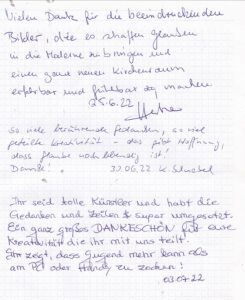 Vielen Dank für die beeindruckenden
Bilder, die es schaffen Glauben
in die Moderne zu bringen und
einen ganz neuen Kirchenraum
erfahrbar und fühlbar zu machen
25.6.22
So viele berührende Gedanken, so viel
geteilte Kreativität - das gibt Hoffnung,
dass Glaube noch lebendig ist!
Danke! 30.06.22 K.
Ihr seid tolle Künstler und habt die
Gedanken und Zeilen super umgesetzt.
Ein ganz großes DANKESCHÖN für eure
Kreativität die ihr mit uns teilt.
Ihr zeigt, dass Jugend mehr kann als
am PC oder Handy zu zocken!
03.07.22